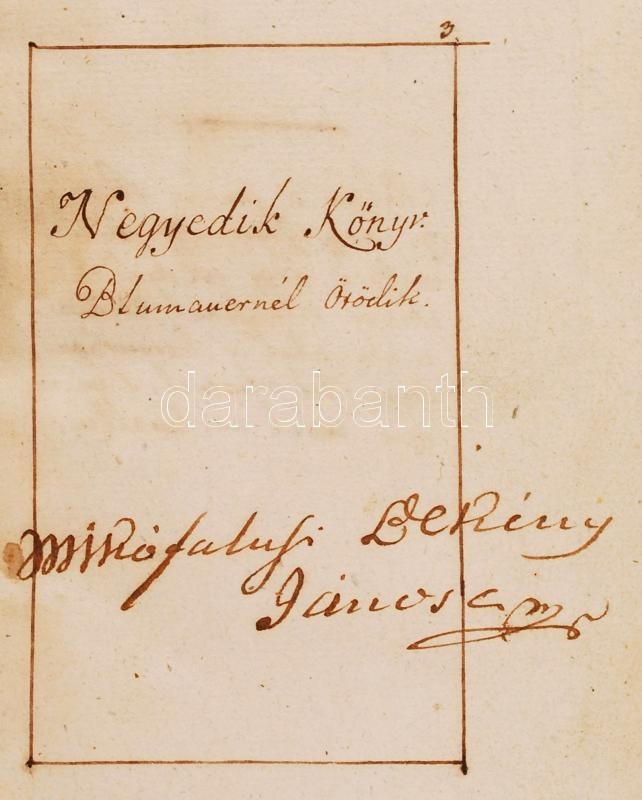 3.
Negyedik Könyv.
Blumauernél ötödik.
darabanth
Mikófalusi Bekény
János mp